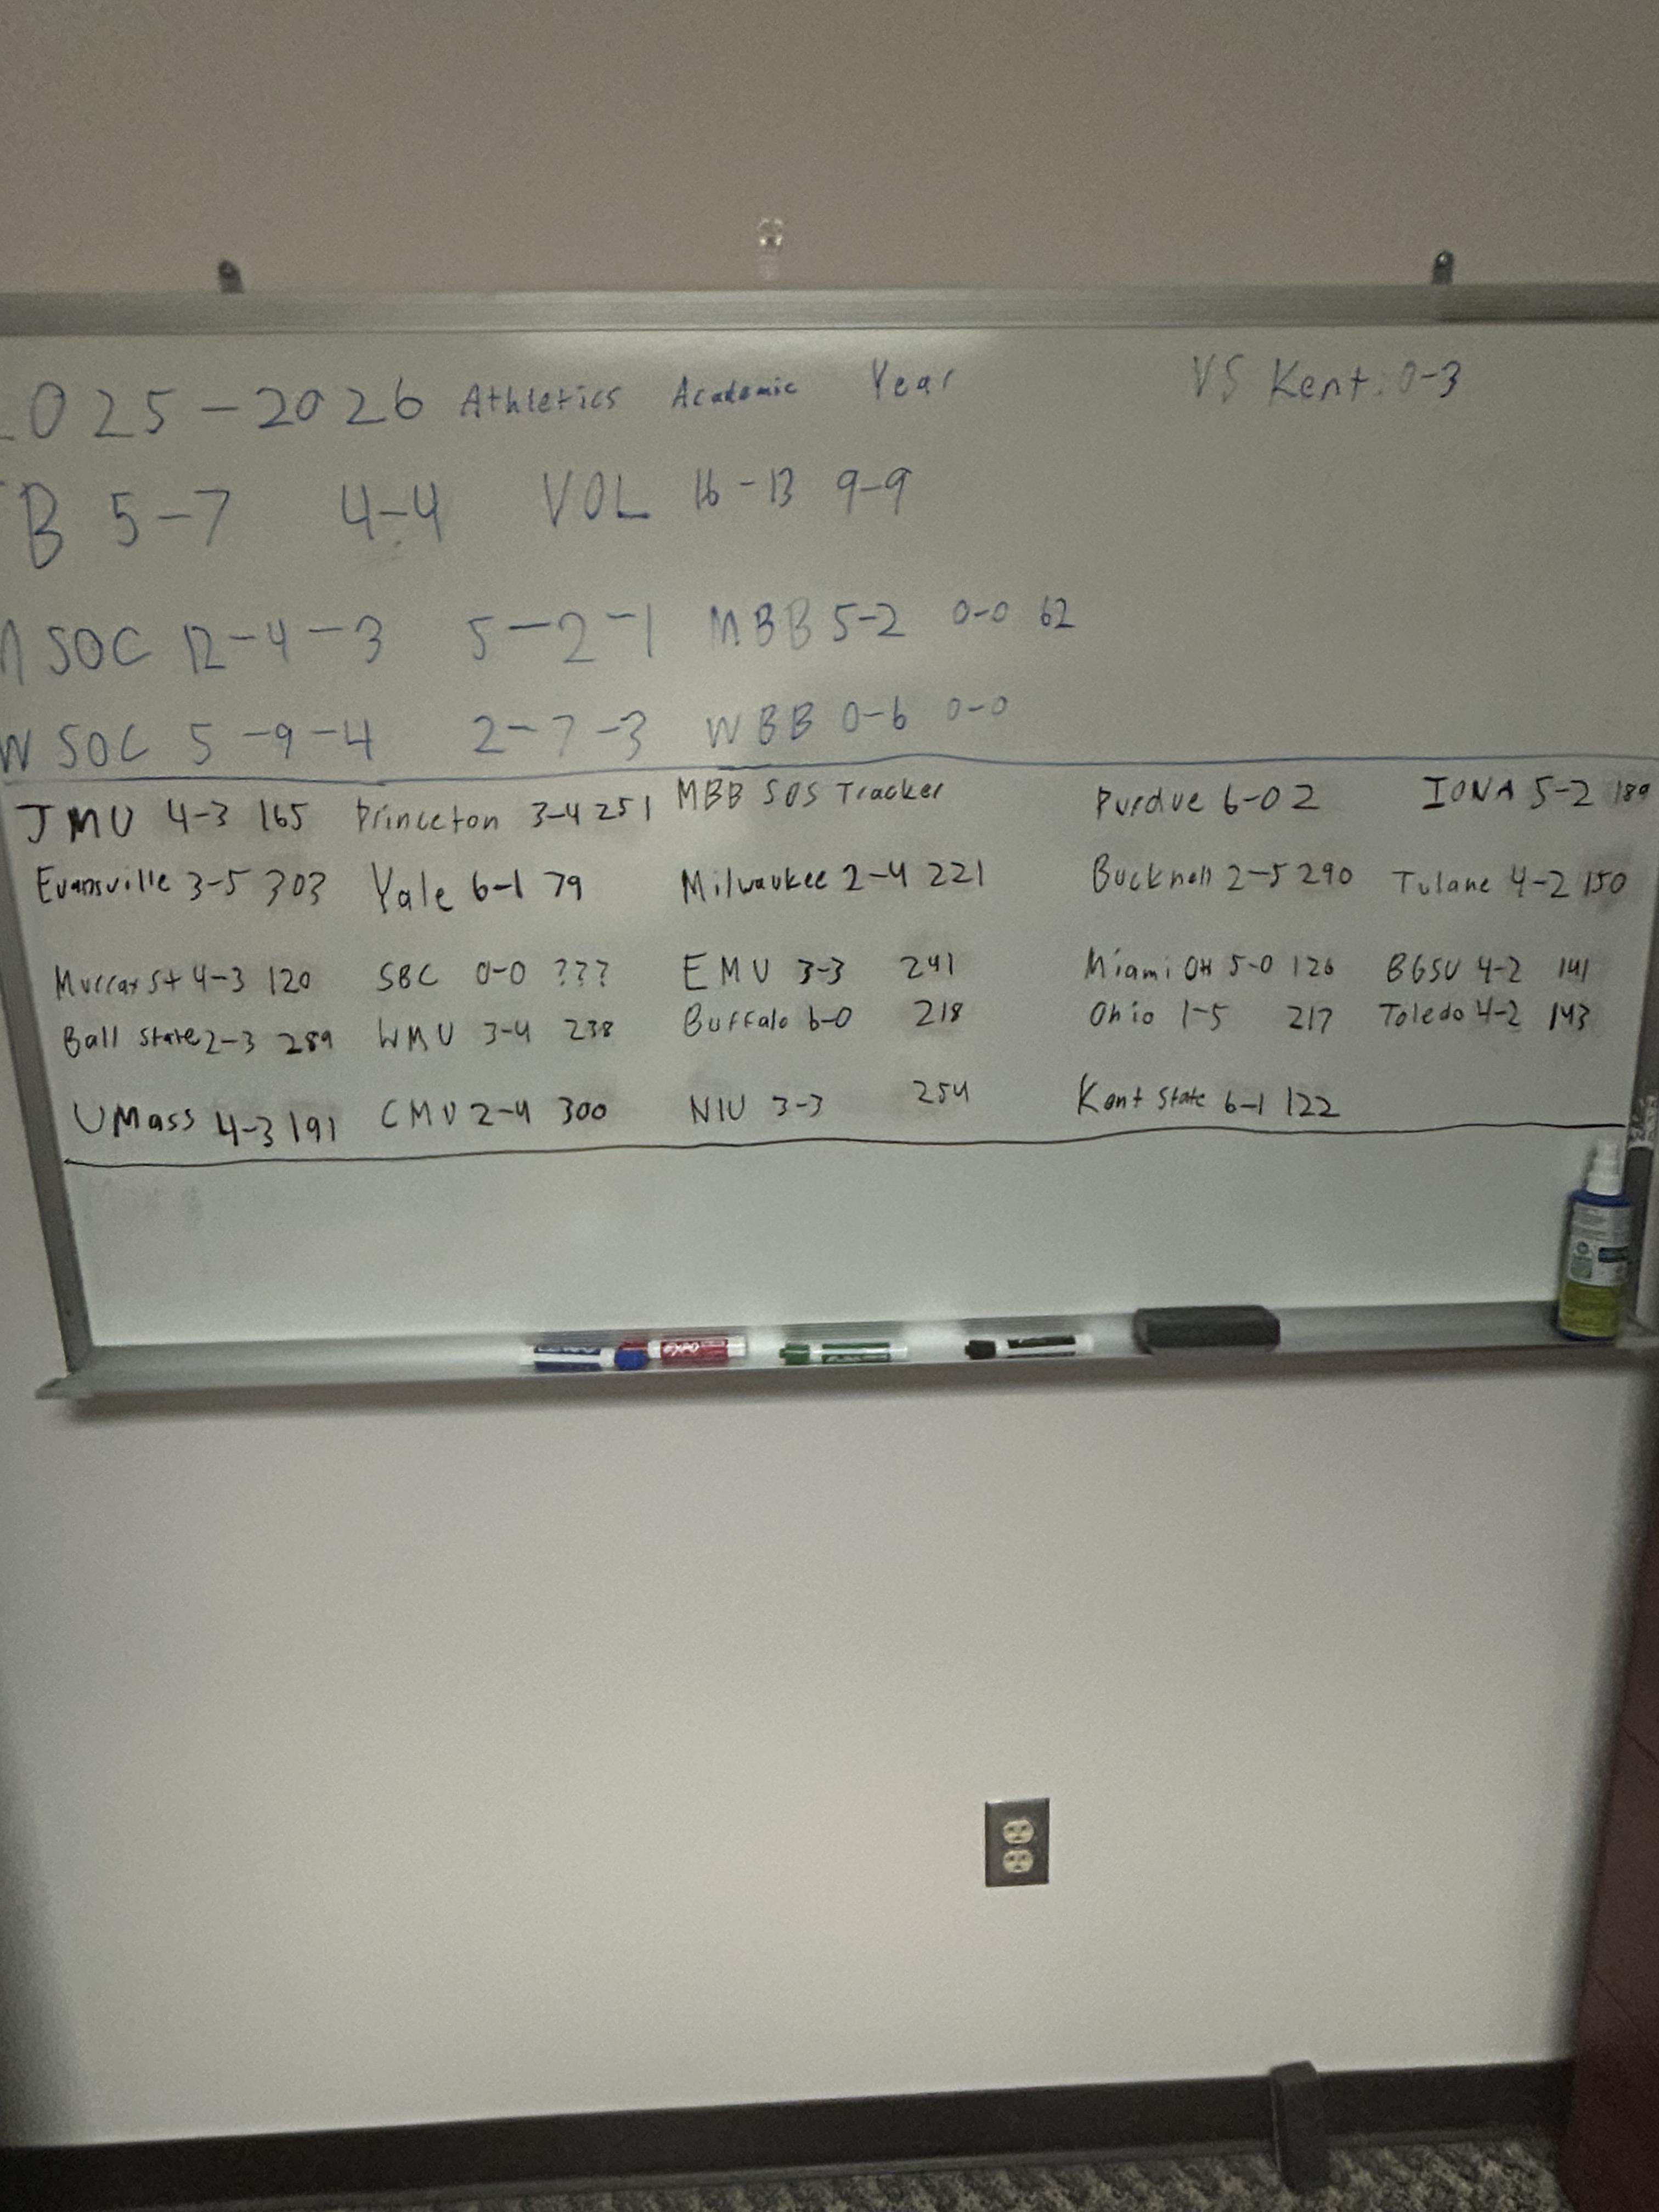 2025-2026 Athletics Academic Year VS Kent: 0-3
FB 5-7 4-4 VOL 16-13 9-9
M SOC 12-4-3 5-2-1 MBB 5-2 0-0 62
W SOC 5-9-4 2-7-3 WBB 0-6 0-0
MBB SOS Tracker
JMU 4-3 165 Princeton 3-4 251 Purdue 6-0 2 IONA 5-2 189
Evansville 3-5 303 Yale 6-1 79 Milwaukee 2-4 221 Bucknell 2-5 290 Tulane 4-2 150
Murray St 4-3 120 SBC 0-0 ??? EMU 3-3 241 Miami OH 5-0 126 BGSU 4-2 141
Ball State 2-3 289 WMU 3-4 238 Buffalo 6-0 218 Ohio 1-5 217 Toledo 4-2 143
UMass 4-3 191 CMU 2-4 300 NIU 3-3 254 Kent State 6-1 122
EXPO